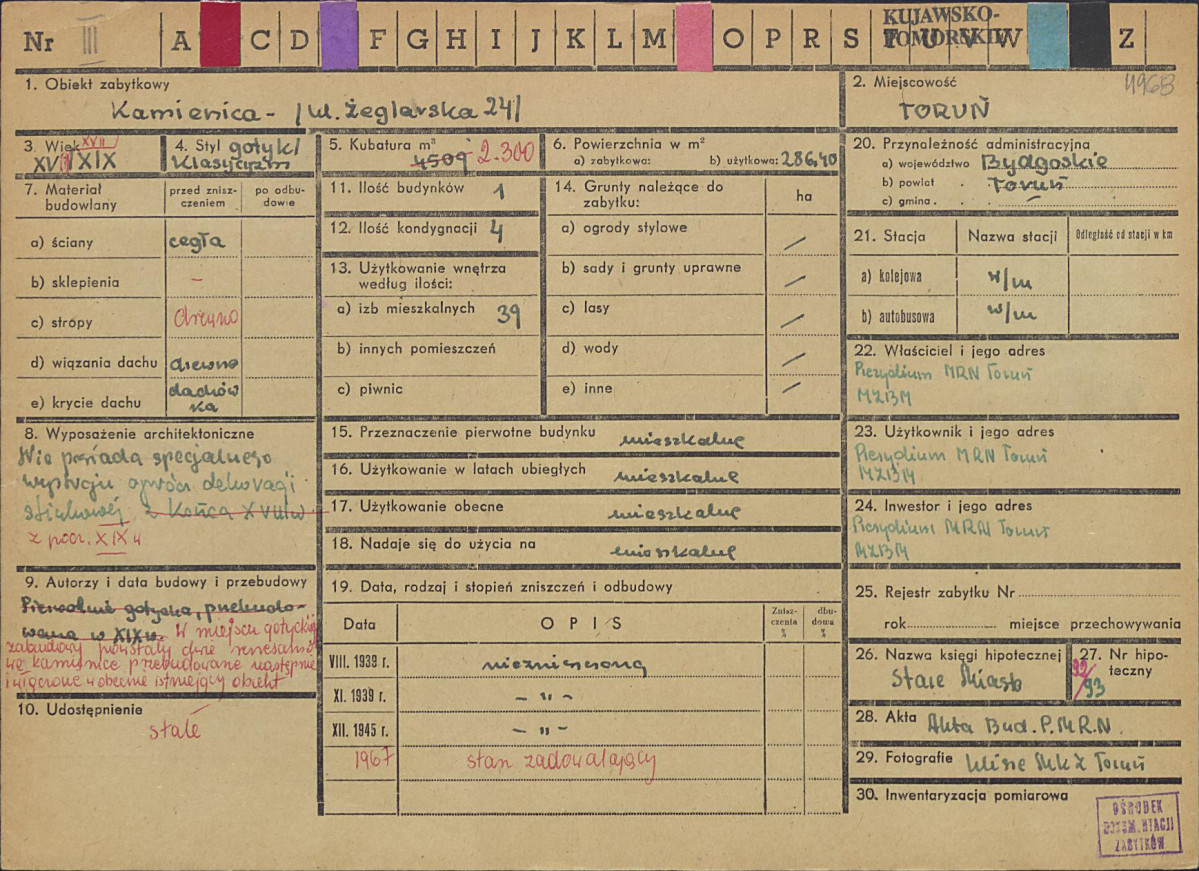 Nr III A C D F G H I J K L M O P R S T U V W Z
KUJAWSKO-
POMORSKIE
1. Obiekt zabytkowy
Kamienica - /ul. Żeglarska 24/
2. Miejscowość
4968
TORUŃ
3. Wiek
XVII
XV XIX
4. Styl gotyk/
klasycyzm
5. Kubatura m³
4509 2.300
6. Powierzchnia w m²
a) zabytkowa: b) użytkowa: 286,40
7. Materiał
budowlany
przed znisz-
czeniem
po odbu-
dowie
a) ściany cegła
b) sklepienia –
c) stropy drewno
d) wiązania dachu drewno
e) krycie dachu dachów
ka
8. Wyposażenie architektoniczne
Nie posiada specjalnego
wystroju oprócz dekoracji
stiukowej z końca XVIII w
z pocz. XIX w
9. Autorzy i data budowy i przebudowy
Pierwotnie gotycka, przebudo-
wana w XIX w. W miejscu gotyckiej
zabudowy powstały dwie renesanso
we kamienice przebudowane następnie
i włączone w obecnie istniejący obiekt
10. Udostępnienie
stałe
11. Ilość budynków 1
12. Ilość kondygnacji 4
13. Użytkowanie wnętrza
według ilości:
a) izb mieszkalnych 39
b) innych pomieszczeń
c) piwnic
14. Grunty należące do
zabytku:
ha
a) ogrody stylowe /
b) sady i grunty uprawne /
c) lasy /
d) wody /
e) inne /
15. Przeznaczenie pierwotne budynku mieszkalne
16. Użytkowanie w latach ubiegłych mieszkalne
17. Użytkowanie obecne mieszkalne
18. Nadaje się do użycia na mieszkalne
19. Data, rodzaj i stopień zniszczeń i odbudowy
Data OPIS
Znisz-
czenia
%
dbu-
dowa
%
VIII. 1939 r. niezniszczony
XI. 1939 r. – " –
XII. 1945 r. – " –
1967 stan zadowalający
20. Przynależność administracyjna
a) województwo Bydgoskie
b) powiat . Toruń
c) gmina . . –
21. Stacja Nazwa stacji Odległość od stacji w km
a) kolejowa w/m
b) autobusowa w/m
22. Właściciel i jego adres
Prezydium MRN Toruń
MZBM
23. Użytkownik i jego adres
Prezydium MRN Toruń
MZBM
24. Inwestor i jego adres
Prezydium MRN Toruń
MZBM
25. Rejestr zabytku Nr
rok miejsce przechowywania
26. Nazwa księgi hipotecznej
Stare Miasto
27. Nr hipo-
teczny
92/93
28. Akta Akta Bud. P.M.R.N.
29. Fotografie klisze MKZ Toruń
30. Inwentaryzacja pomiarowa
OŚRODEK
DOKUMENTACJI
ZABYTKÓW